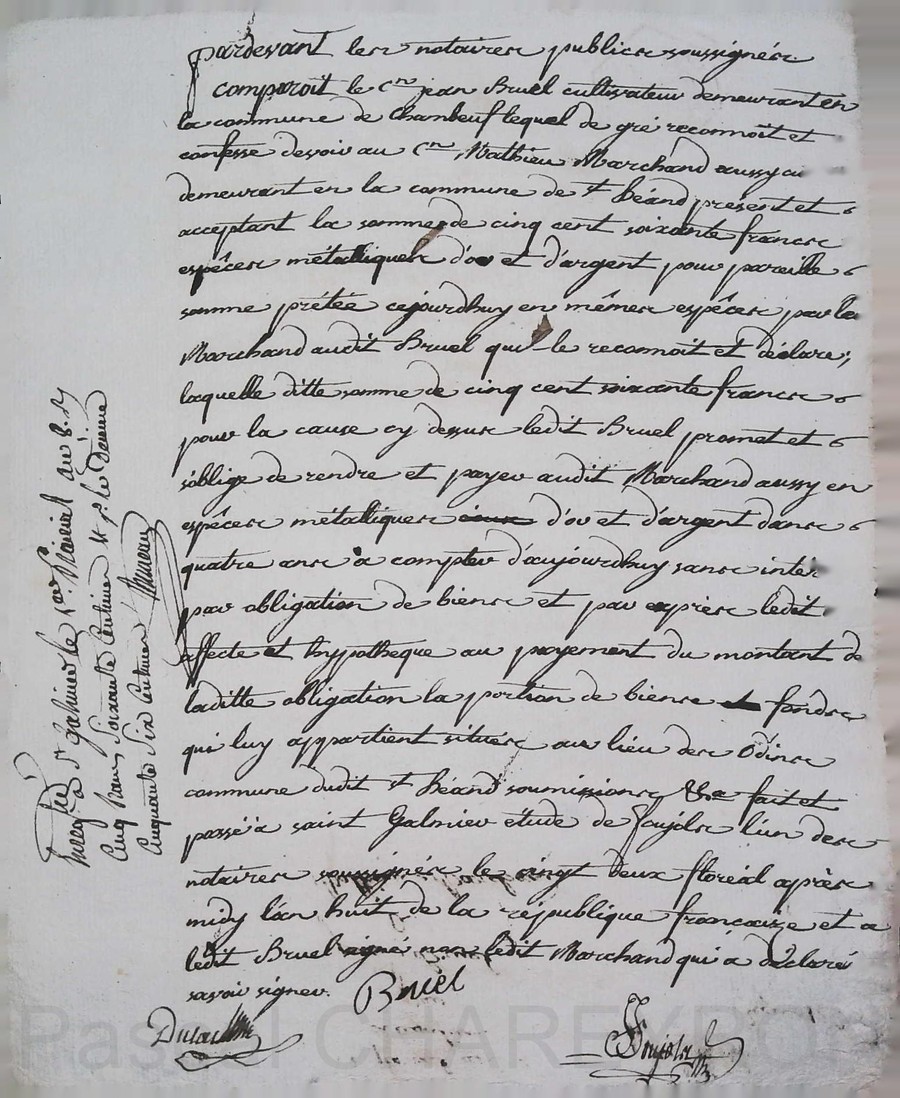 pardevant les notaires publics soussignés
comparoit le C.en jean Bruel cultivateur demeurant en
la commune de Chambeuf lequel de gré reconnoit et
confesse devoir au C.en Mathieu Marchand aussy cu
demeurant en la commune de St héand présent et
acceptant la somme de cinq cent soixante francs
espêces métalliques d'or et d'argent pour pareille
somme prétée cejourdhuy en mêmes espêces par le
Marchand audit Bruel qui le reconnoit et déclare;
laquelle ditte somme de cinq cent soixante francs
pour la cause cy dessus ledit Bruel promet et
s'oblige de rendre et payer audit Marchand aussy en
espêces métalliques d'or et d'argent dans
quatre ans a compter d'aujourdhuy sans inter
par obligation de biens et par exprès ledit
affecte et hypotheque au payement du montant de
laditte obligation la portion de biens et fonds
qui luy appartient situés au lieu des Odins
commune dudit St héand soumissions &a fait et
passé à saint Galmier étude de Poujols l'un des
notaires soussignés le vingt deux floréal après
midy l'an huit de la république francaise et a
ledit Bruel signé non ledit Marchand qui a déclaré
savoir signer. Bruel
Enregistré a St Galmier le floréal an 8. R
Cinq francs Soixante Centimes et pr le Dixieme
Cinquante Six Centimes
Pascal CHAREYRON